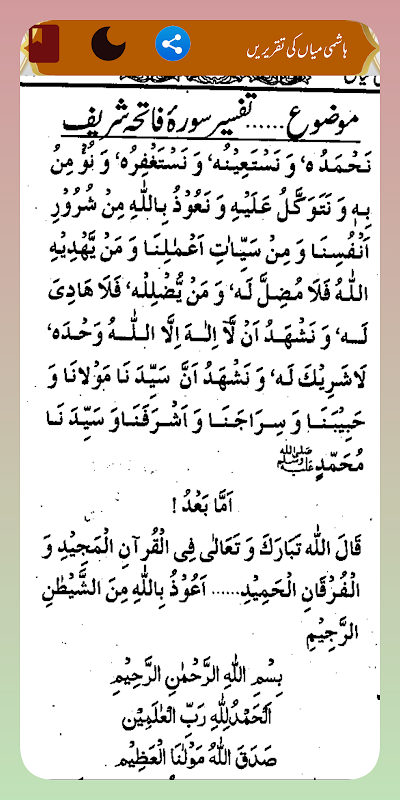 ہاشمی میاں کی تقریریں
موضوع ...... تفسیر سورۂ فاتحہ شریف
نَحْمَدُہٗ وَ نَسْتَعِیْنُہٗ وَ نَسْتَغْفِرُہٗ وَ نُؤْمِنُ
بِہٖ وَ نَتَوَکَّلُ عَلَیْہِ وَ نَعُوْذُ بِاللّٰہِ مِنْ شُرُوْرِ
اَنْفُسِنَا وَ مِنْ سَیِّاٰتِ اَعْمٰلِنَا وَ مَنْ یَّھْدِیْہِ
اللّٰہُ فَلَا مُضِلَّ لَہٗ وَ مَنْ یُّضْلِلْہٗ فَلَا ھَادِیَ
لَــہٗ وَ نَشْھَدُ اَنْ لَّآ اِلٰــہَ اِلَّا الـلّٰـہُ وَحْـدَہٗ
لَا شَرِیْکَ لَہٗ وَ نَشْھَدُ اَنَّ سَیِّدَ نَا مَوْلَانَا وَ
حَبِیْبَنَـا وَ سِـرَاجَنَـا وَ اَشْـرَفَنَـا وَ سَیِّدَ نَـا
مُحَمَّدٍ ﷺ
اَمَّا بَعْدُ !
قَالَ اللّٰہ تَبَارَکَ وَ تَعَالٰی فِی الْقُرآنِ الْمَجِیْدِ وَ
الْفُرْقَانِ الْحَمِیْدِ...... اَعُوْذُ بِاللّٰہِ مِنَ الشَّیْطٰنِ
الرَّجِیْمِ
بِسْمِ اللّٰہِ الرَّحْمٰنِ الرَّحِیْمِ
اَلْحَمْدُ لِلّٰہِ رَبِّ الْعٰلَمِیْن
صَدَقَ اللّٰہُ مَوْلٰنَا الْعَظِیْم